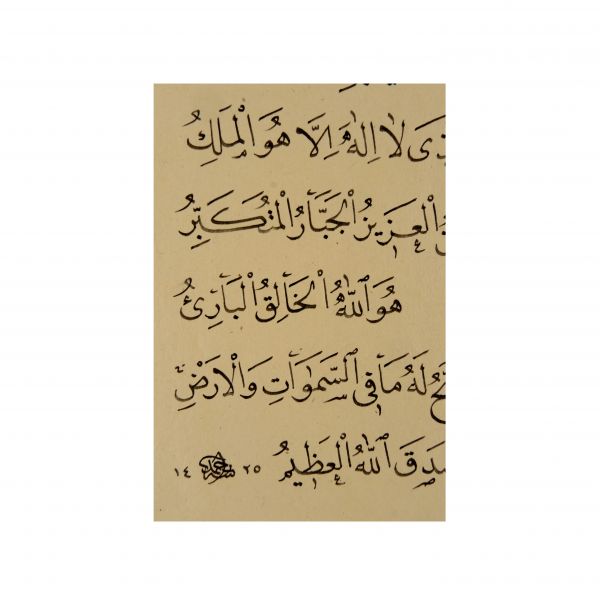 لَا اِلٰهَ اِلَّا هُوَ الْمَلِكُ
الْعَزِيزُ الْجَبَّارُ الْمُتَكَبِّرُ
هُوَ اللّٰهُ الْخَالِقُ الْبَارِئُ
لَهُ مَا فِى السَّمٰوَاتِ وَالْاَرْضِ
اللّٰهُ الْعَظِيمُ ١٤ ٢٥